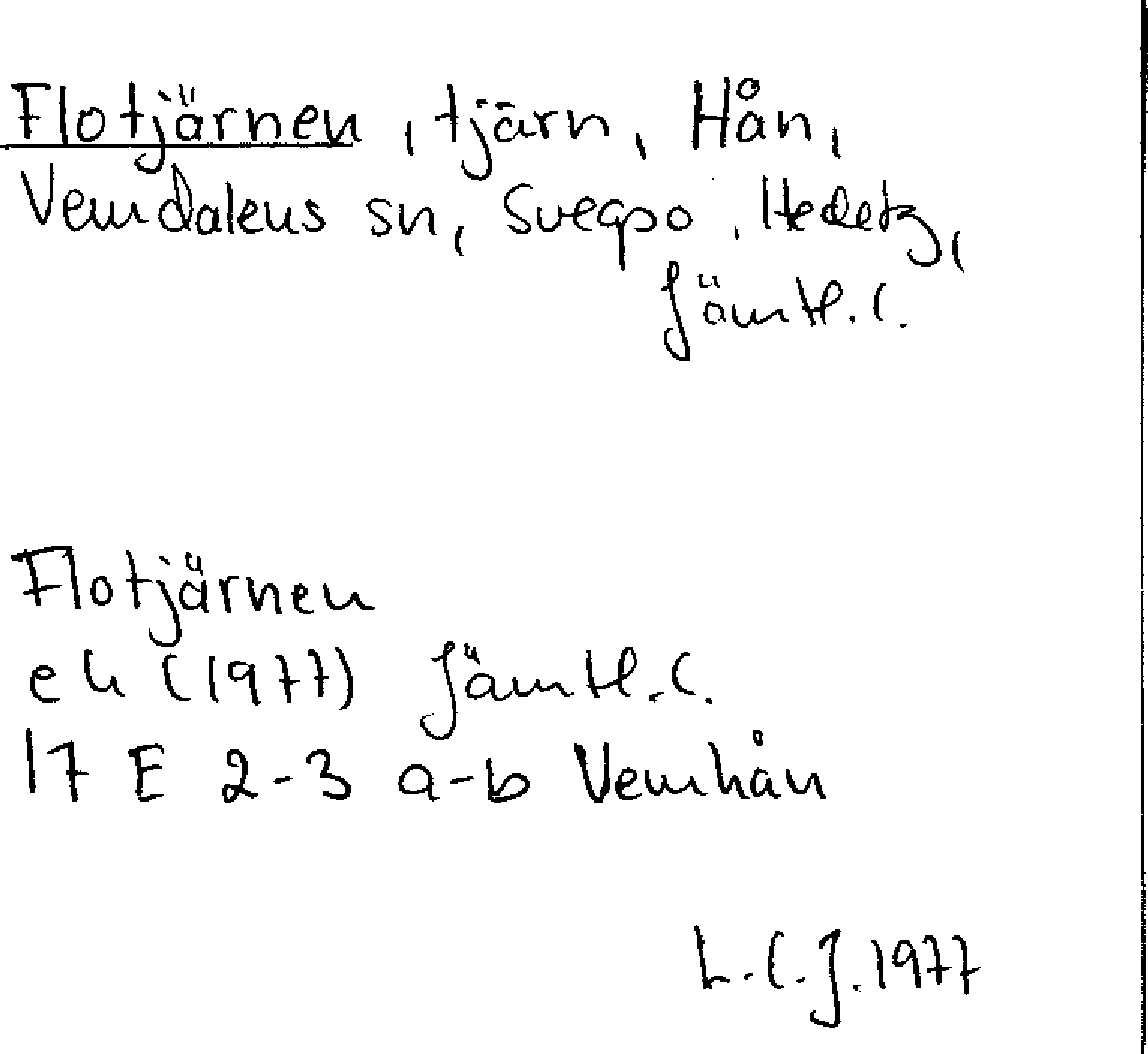 Flotjärnen, tjärn, Hån,
Vemdalens sn, Svegpo, Hedetg,
Jämtl.l.
Flotjärnen
ek (1977) Jämtl.l.
17 E 2-3 a-b Vemhån
L.C.J. 1977